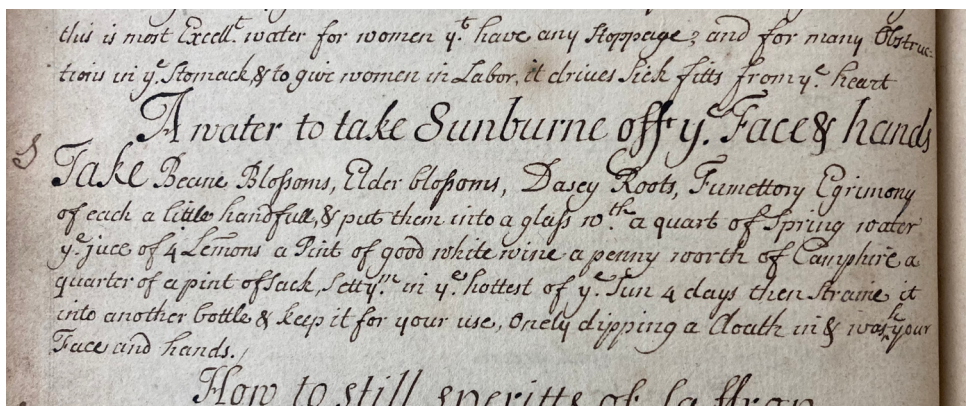 this is most Excell.t water for women y.t have any stoppage; and for many Obstruc=
tions in y.e Stomack, & to give women in Labor, it drives sick fitts from y.e heart
A water to take Sunburne off y.e Face & hands
Take Beane Bloſsoms, Elder bloſsoms, Dasey Roots, Fumettory Egrimony
of each a little handfull, & put them into a glaſs w.th a quart of Spring water
y.e juce of 4 Lemons a Pint of good white wine a penny worth of Camphire a
quarter of a pint of Sack, Sett y.m in y.e hottest of y.e Sun 4 days then straine it
into another bottle & keep it for your use, Onely dipping a Clouth in & wash your
Face and hands.
How to still speritts of saffron